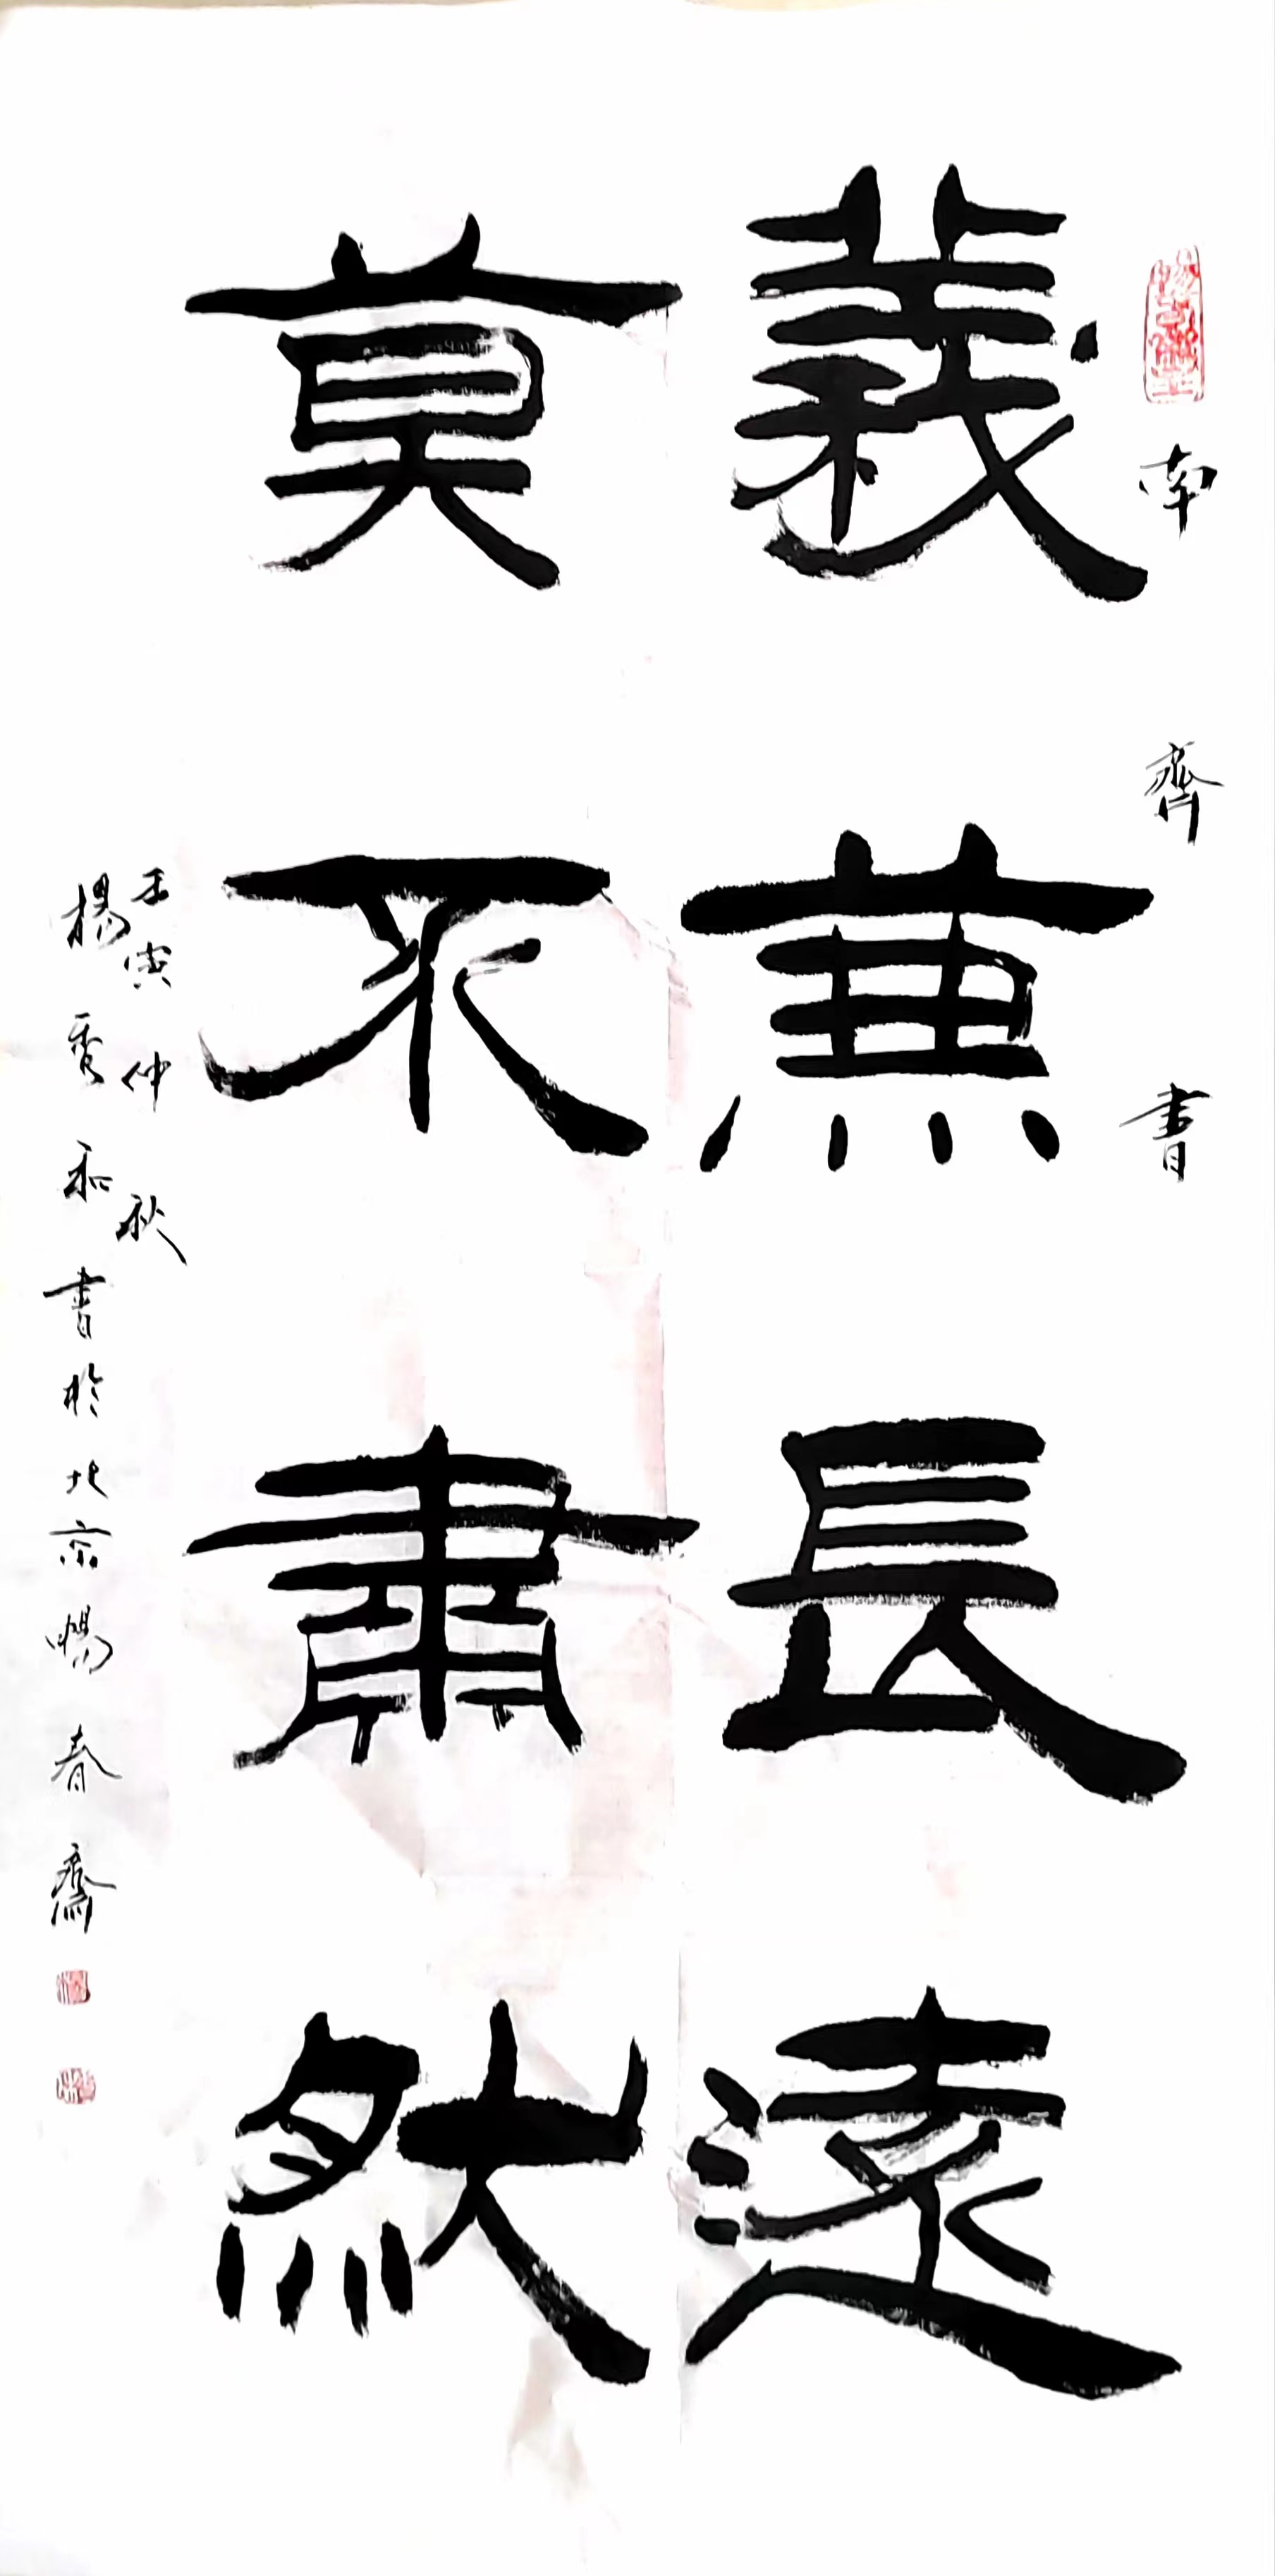 南齊書
義兼長遠
莫不肅然
壬寅仲秋
楊秀和書於北京暢春齋